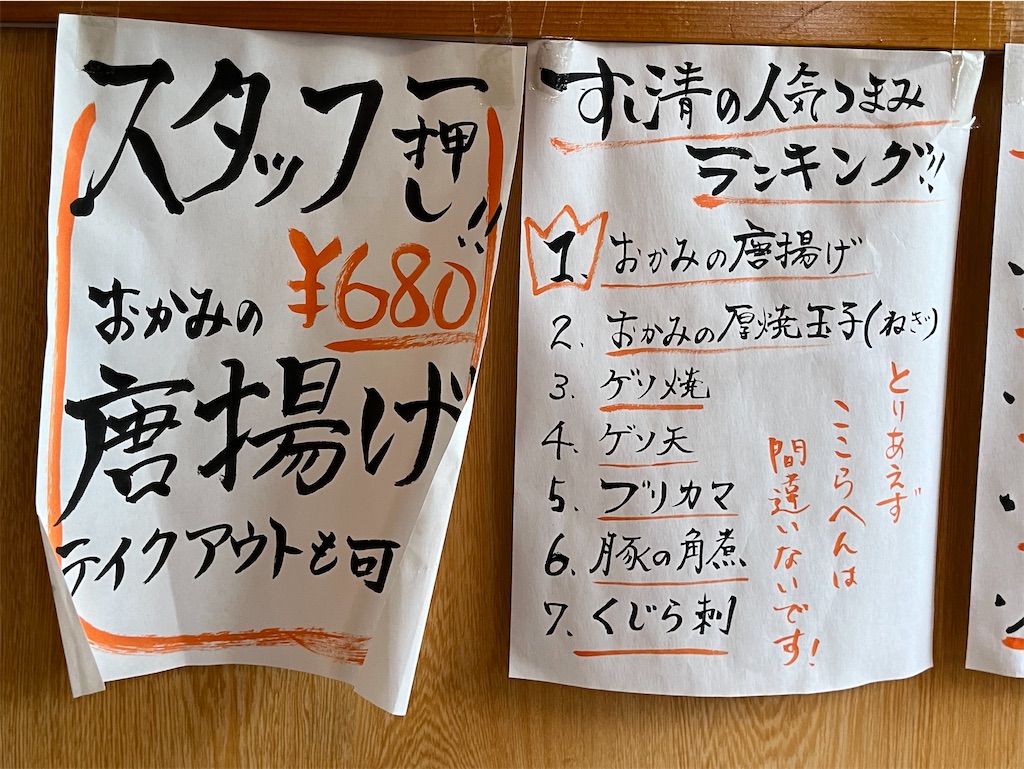 スタッフ一押し!!
¥680
おかみの
唐揚げ
テイクアウトも可
すし清の人気つまみ
ランキング!!
1. おかみの唐揚げ
2. おかみの厚焼玉子(ねぎ)
3. ゲソ焼
4. ゲソ天
5. ブリカマ
6. 豚の角煮
7. くじら刺
とりあえず
ここらへんは
間違いないです!